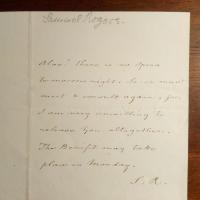 Samuel Rogers.
Alas! There is no Opera
tomorrow night. So we must
meet & consult again, for
I am very unwilling to
release you altogether.
The Benefit may take
place on Monday.
S. R.